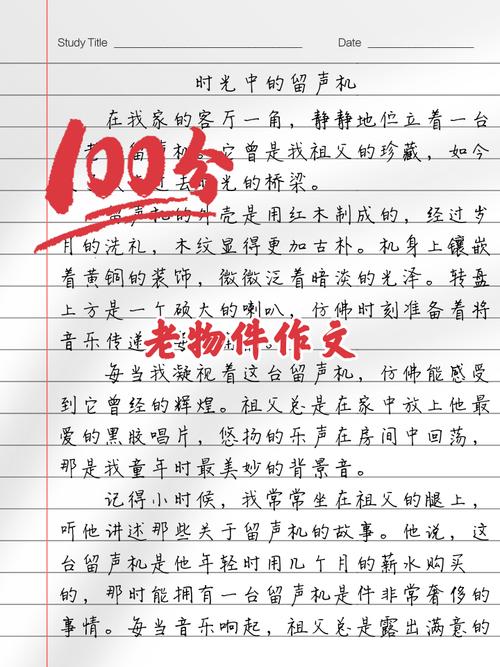 Study Title
Date
时光中的留声机
在我家的客厅一角，静静地伫立着一台
留声机。它曾是我祖父的珍藏，如今
过去时光的桥梁。
100分
留声机的外壳是用红木制成的，经过岁
月的洗礼，木纹显得更加古朴。机身上镶嵌
着黄铜的装饰，微微泛着暗淡的光泽。转盘
上方是一个硕大的喇叭，仿佛时刻准备着将
音乐传递
老物件作文
每当我凝视着这台留声机，仿佛能感受
到它曾经的辉煌。祖父总是在家中放上他最
爱的黑胶唱片，悠扬的乐声在房间中回荡，
那是我童年时最美妙的背景音。
记得小时候，我常常坐在祖父的腿上，
听他讲述那些关于留声机的故事。他说，这
台留声机是他年轻时用几个月的薪水购买
的，那时能拥有一台留声机是件非常奢侈的
事情。每当音乐响起，祖父总是露出满意的